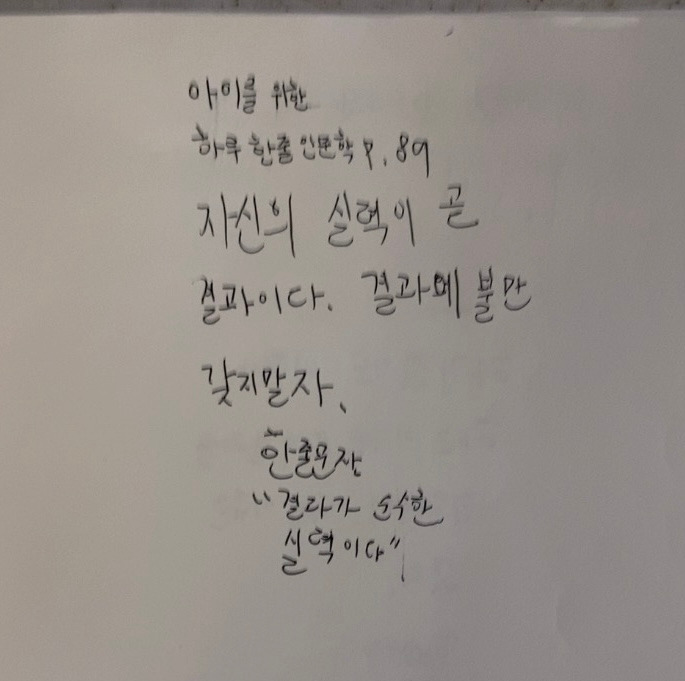 아이를 위한
하루 한줄 인문학 P. 89
자신의 실력이 곧
결과이다. 결과에 불만
갖지말자.
한줄문장
"결과가 순수한
실력이다"